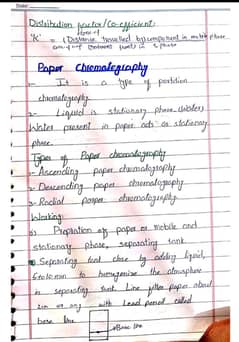 Date:
Distribution factor/Co-efficient:
'K' = (Distance travelled by component in mobile phase
Paper Chromatography
1- It is a type of partition
chromatography.
2- Liquid is stationary phase (water)
Water present in paper acts as stationary
phase.
Types of Paper chromatography
1- Ascending paper chromatography
2- Descending paper chromatography
3- Radial paper chromatography
Working:
Preptation of paper or mobile and
stationary phase, separating tank
Separating tank close by adding liquid,
to homogenise the atmosphere
in separating tank Line paper about
2cm or any with Lead pencil called
base line
Base line